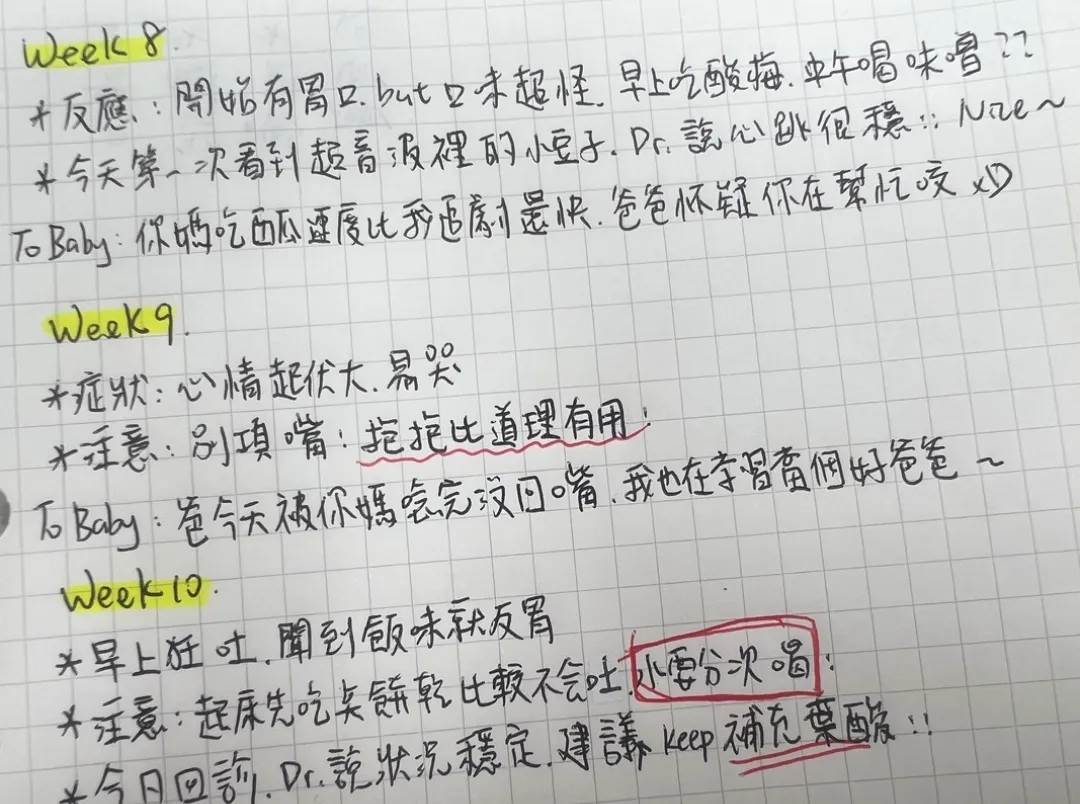 Week 8.
*反應:開始有胃口.but口味超怪.早上吃酸梅.中午喝味噌??
*今天第一次看到超音波裡的小豆子.Dr.說心跳很穩!! Nice~
To Baby:你媽吃西瓜速度比我追劇還快.爸爸怀疑你在幫忙咬 xD
Week 9.
*症狀:心情起伏大.易哭
*注意:別頂嘴!抱抱比道理有用!
To Baby:爸今天被你媽唸完沒回嘴.我也在学習當個好爸爸~
Week 10.
*早上狂吐.聞到飯味就反胃
*注意:起床先吃点餅乾比較不会吐.水要分次喝!
*今日回診.Dr.說狀況穩定.建議 keep 補充葉酸!!